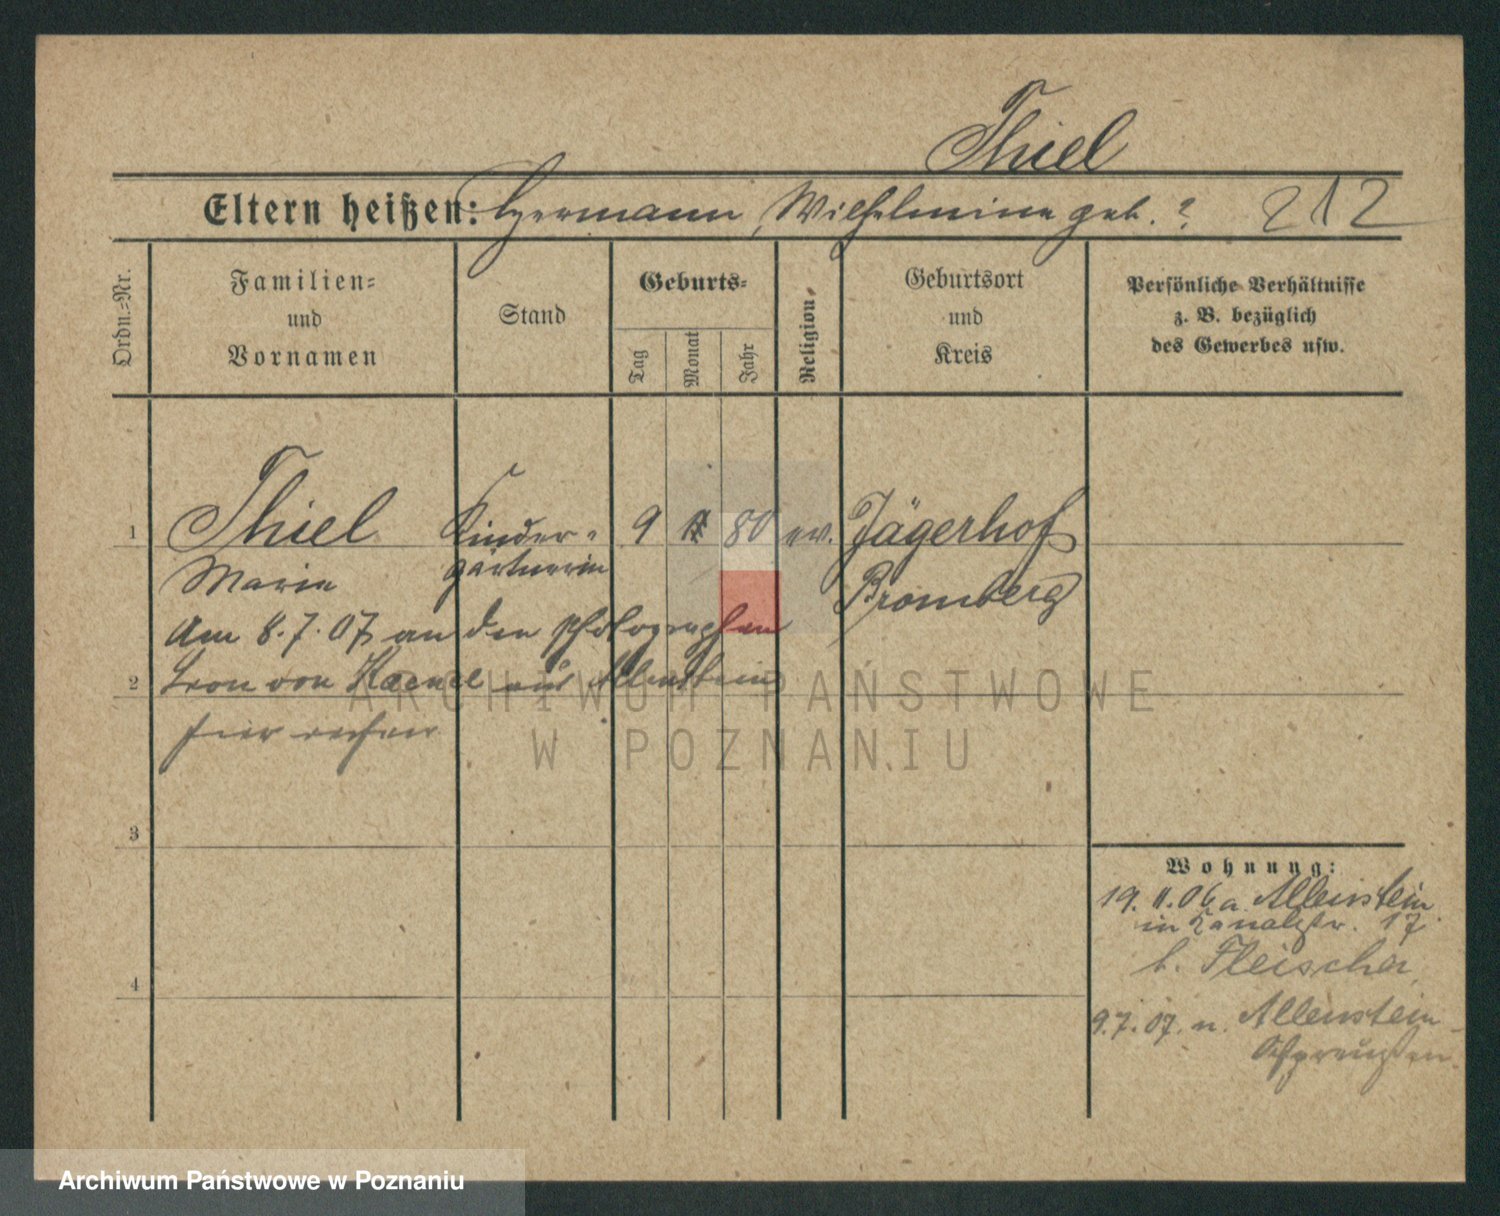 Thiel
Eltern heißen: Hermann, Wilhelmine geb. ? 212
Ordn.=Nr.
Familien=
und
Vornamen
Stand
Geburts=
Tag
Monat
Jahr
Religion.
Geburtsort
und
Kreis
Persönliche Verhältnisse
z. B. bezüglich
des Gewerbes usw.
1 Thiel Kinder- 9 80 ev. Jägerhof
Marie gärtnerin Bromberg
Am 8.7.07 an den Photographen
2 Leon von Kaenel aus Allenstein
hier
3
4
Wohnung:
19. 11. 06 a. Allenstein
in Kanalstr. 17
b. Fleischer
9.7.07. n. Allenstein
Ostpreußen
ARCHIWUM PAŃSTWOWE
W POZNANIU
Archiwum Państwowe w Poznaniu